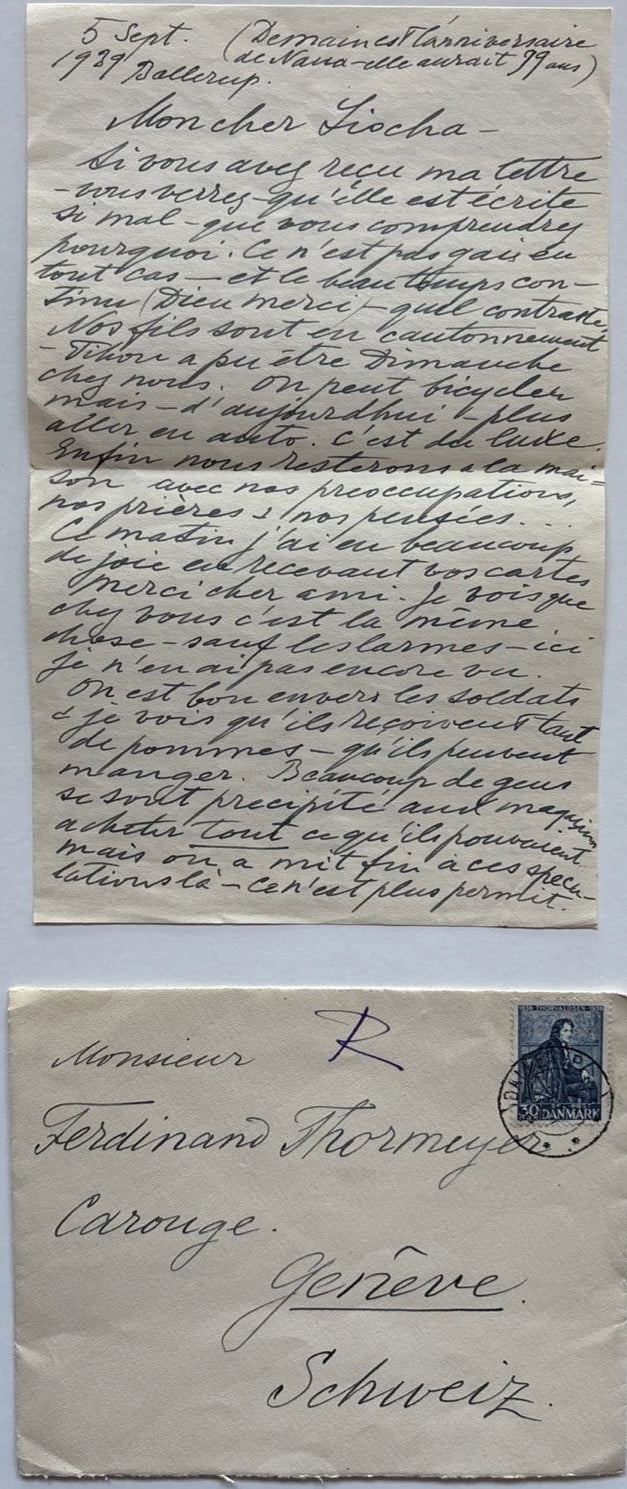 5 Sept. (Demain est l'anniversaire
1939 de Nana - elle aurait 99 ans)
Ballerup.
Mon cher Siocha -
Si vous avez reçu ma lettre
- vous verrez - qu'elle est écrite
si mal - que vous comprendrez
pourquoi. Ce n'est pas gai en
tout cas - et le beau temps con-
tinu (Dieu merci) - quel contraste.
Nos fils sont en cantonnement
- Tihon a pu être Dimanche
chez nous. On peut bicycler
mais - d'aujourdhui - plus
aller en auto. C'est du luxe.
Enfin nous resterons a la mai=
son avec nos préoccupations,
nos prières & nos pensées...
Ce matin j'ai eu beaucoup
de joie en recevant vos cartes
Merci cher ami. Je vois que
chez vous c'est la même
chose - sauf les larmes - ici
je n'en ai pas encore vu.
On est bon envers les soldats
& je vois qu'ils reçoivent tant
de pommes - qu'ils peuvent
manger. Beaucoup de gens
se sont précipité aux magasins
acheter tout ce qu'ils pouvaient
mais on a mit fin à ces specu-
lations là - ce n'est plus permit.
R
1838 THORVALDSEN 1938
30 DANMARK
Monsieur
Ferdinand Thormeyer
Carouge.
Genève.
Schweiz.